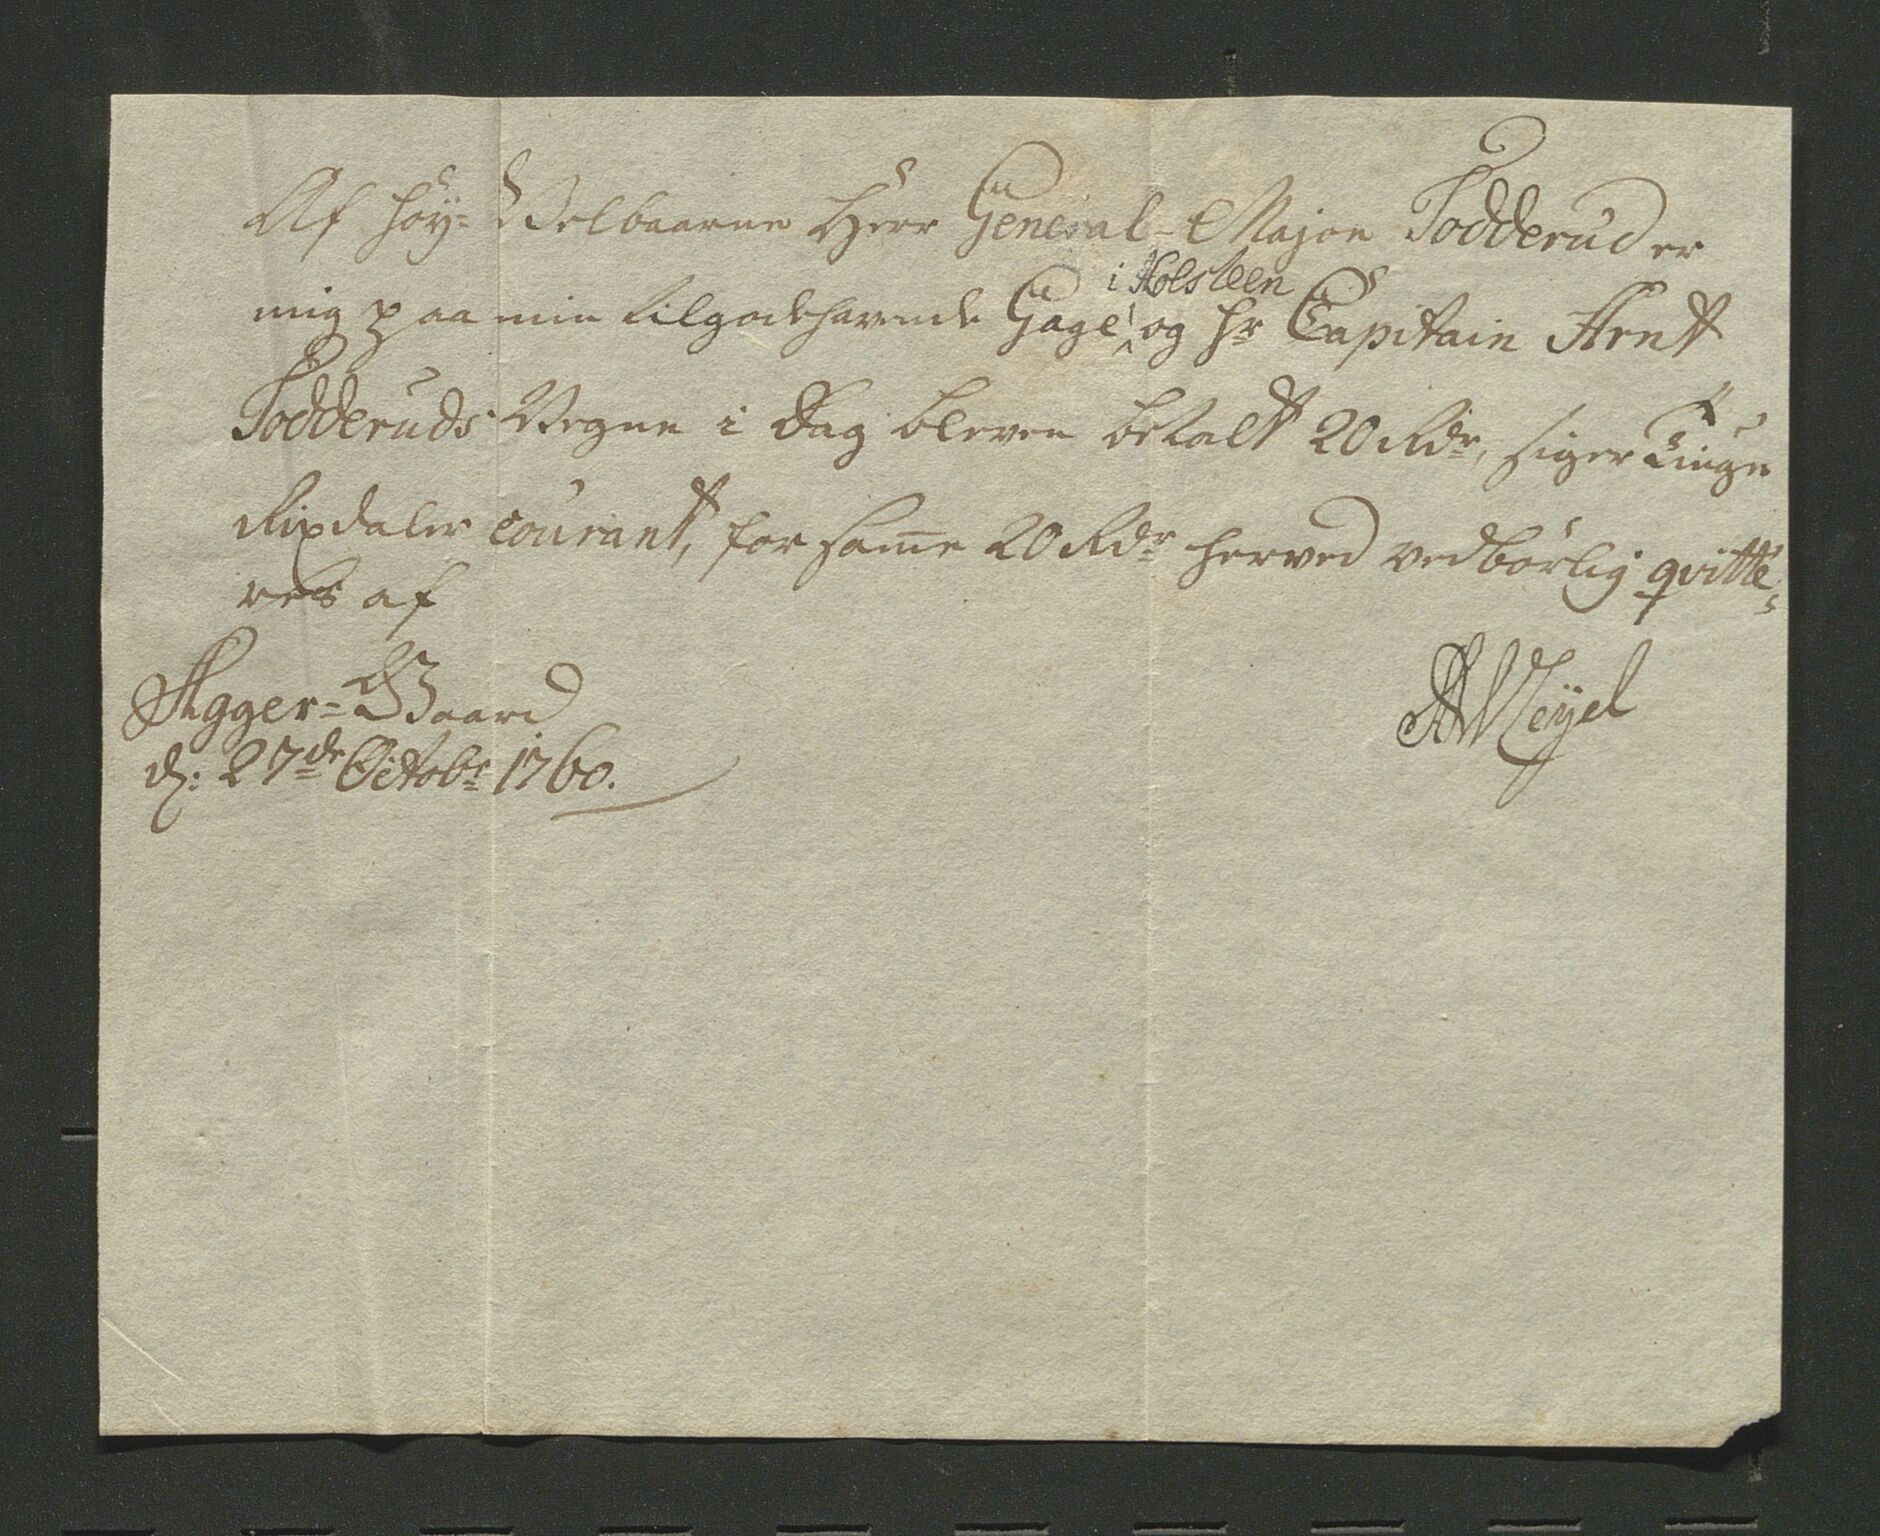 Af höy- Velbaarne Herr General-Major Todderud er
mig paa min tilgodehavende Gage i Holsteen og Hr Capitain Arntt
Todderuds Vegne i Dag bleven betaltt 20 Rdr, siger Tiuge
Rixdaler courantt, for same 20 Rdr herved vedbörlig qvitte-
res af
Agger-Gaard
d: 27de Octobr 1760.